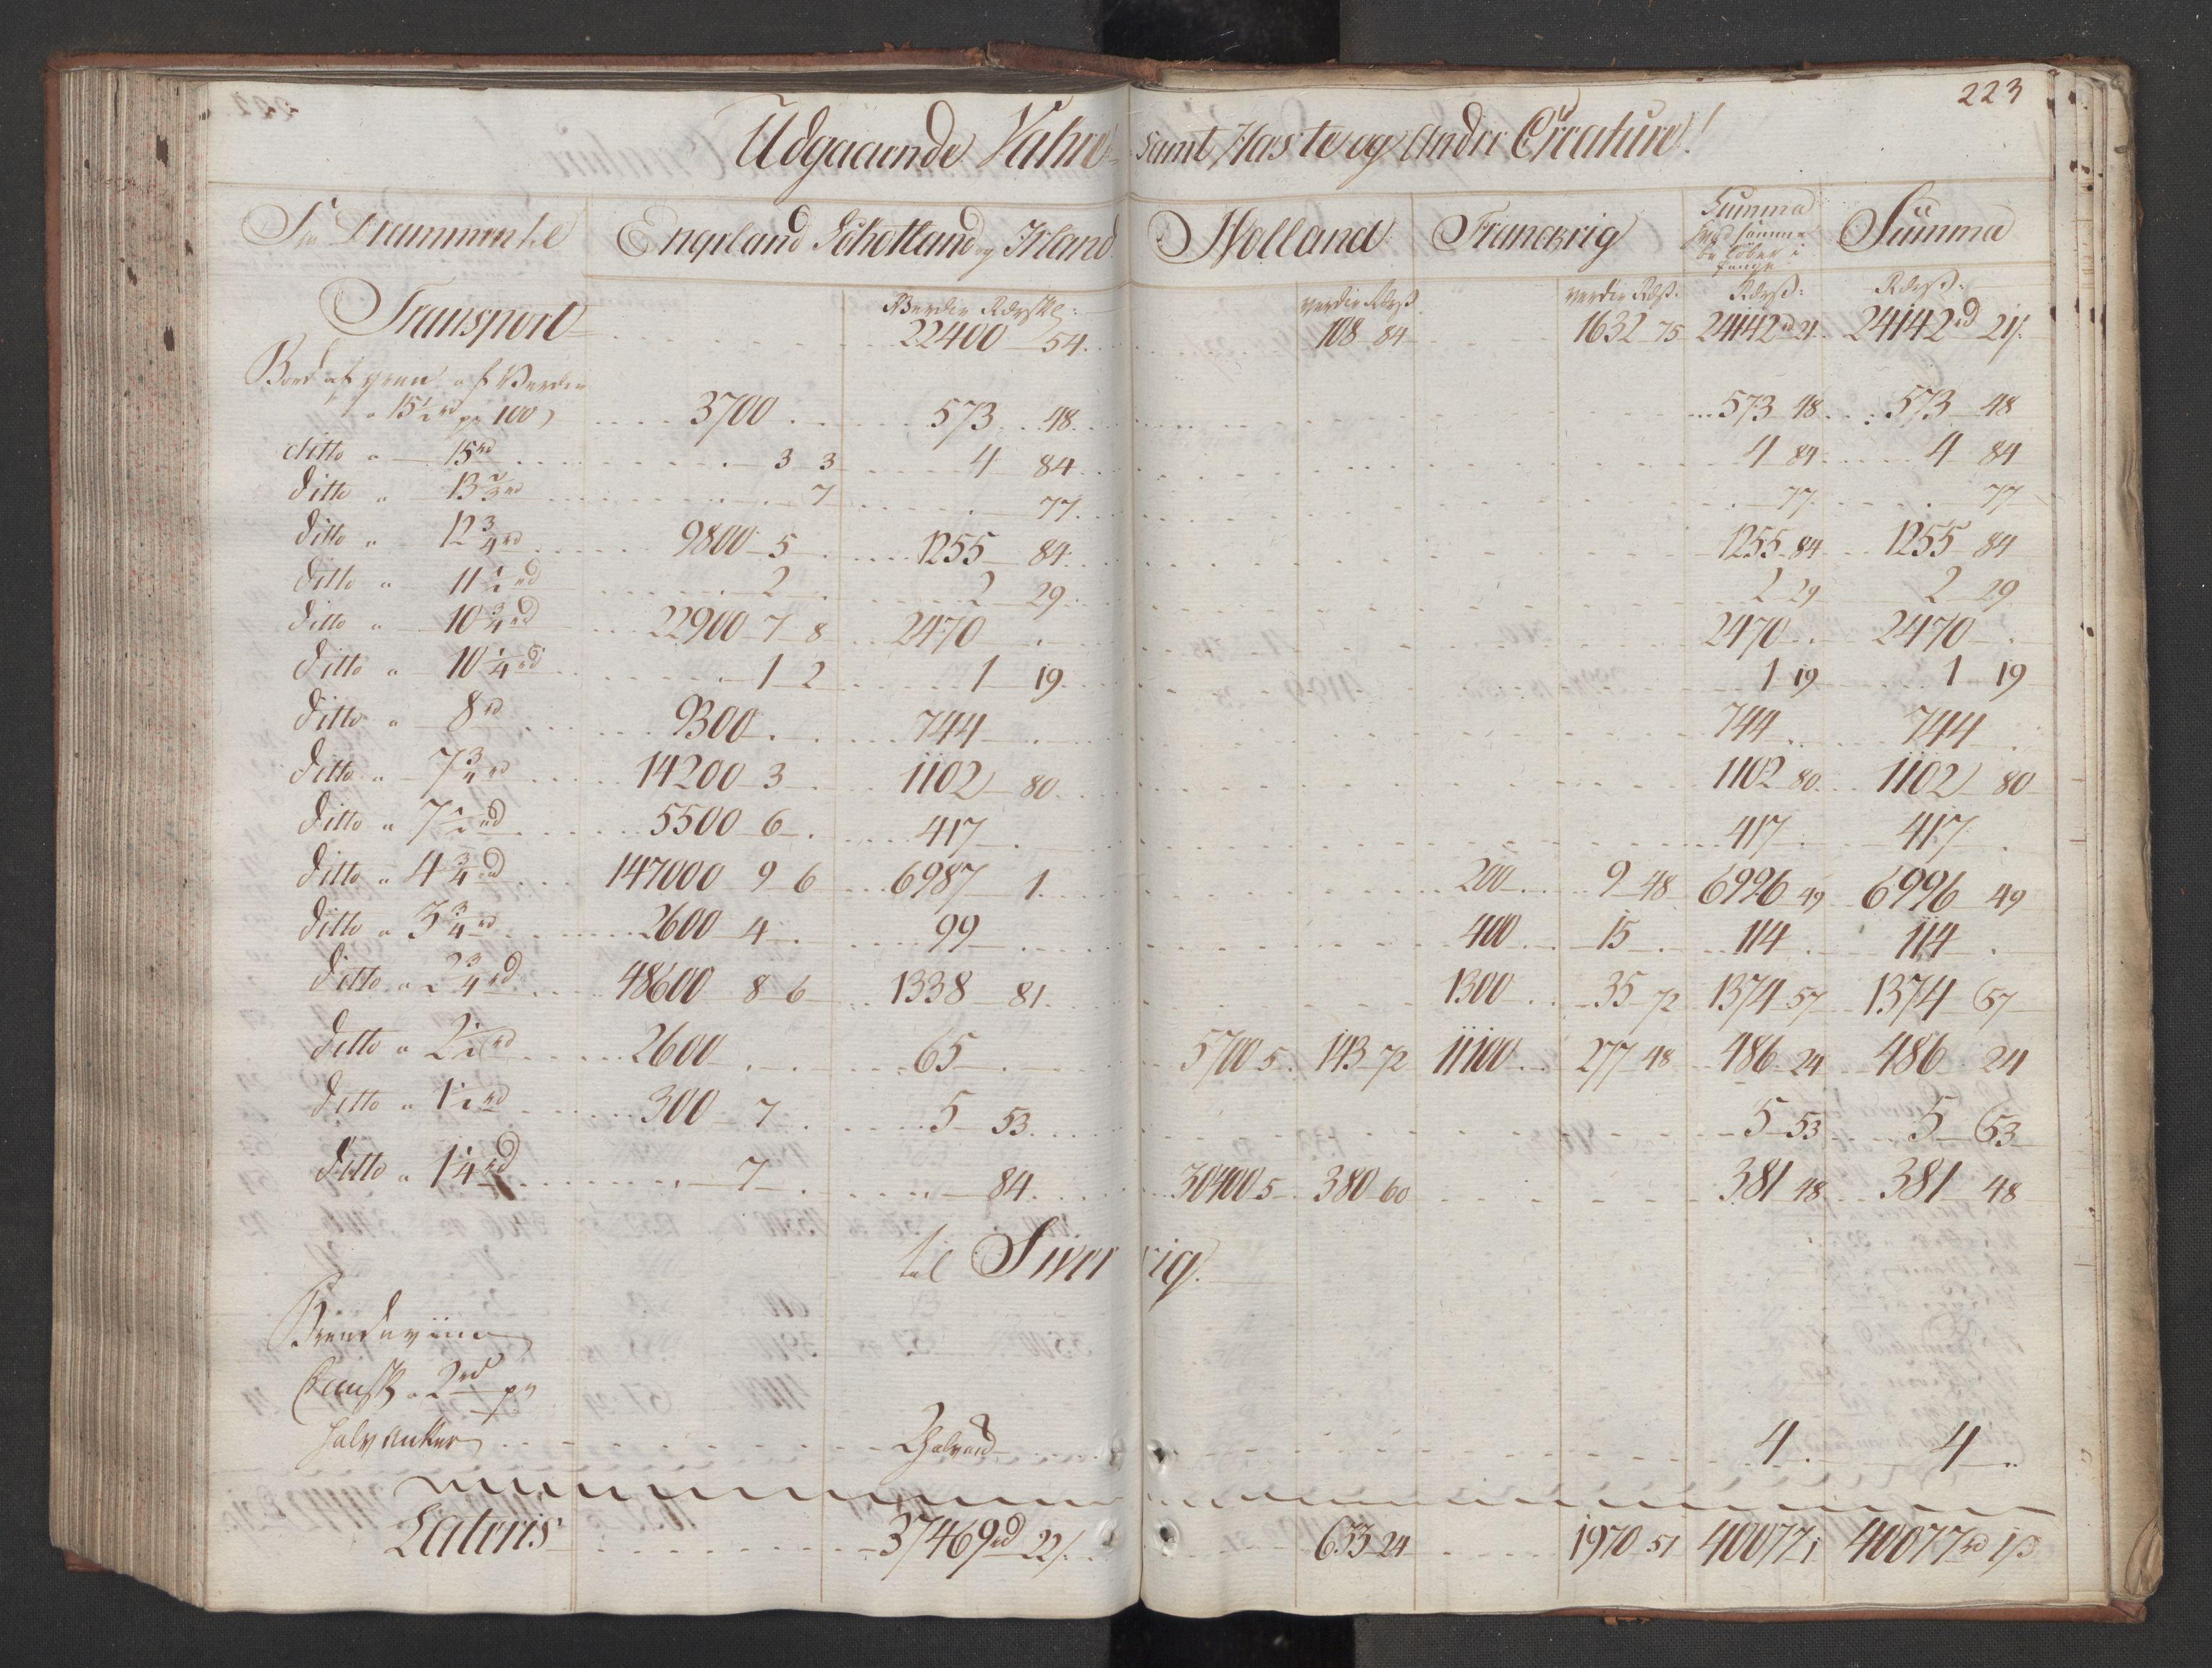 223
Udgaaende Vahre samt Hæste og Andre Creature!
Fra Drammen til England Schotland og Irland Holland Franckrig Summa Summa
Verdie Rdr Verdie Rdr Verdie Rdr Rdr Rdr
Transport 22400 54 108 84 1632 75 24142 rd 21 24142 rd 21
Bord af gran af Verdie
a 15 1/2 rd pr 100 3700 573 48 573 48 573 48
ditto a 15 rd 3 3 4 84 4 84 4 84
ditto a 13 2/3 rd 7 77 77 77
ditto a 12 3/4 rd 9800 5 1255 84 1255 84 1255 84
ditto a 11 1/2 rd 2 2 29 2 29 2 29
ditto a 10 3/4 rd 22900 7 8 2470 2470 2470
ditto a 10 1/4 rd 1 2 1 19 1 19 1 19
ditto a 8 rd 9300 744 744 744
ditto a 7 3/4 rd 14200 3 1102 80 1102 80 1102 80
ditto a 7 1/2 rd 5500 6 417 417 417
ditto a 4 3/4 rd 147000 9 6 6987 1 200 9 48 6996 49 6996 49
ditto a 3 3/4 rd 2600 4 99 400 15 114 114
ditto a 2 3/4 rd 48600 8 6 1338 81 1300 35 72 1374 57 1374 57
ditto a 2 1/2 rd 2600 65 5700 5 143 72 11100 277 48 486 24 486 24
ditto a 1 1/2 rd 300 7 5 53 5 53 5 53
ditto a 1 1/4 rd 7 84 30400 5 380 60 381 48 381 48
til Sverrig
Brendeviin
Dansk a 2 rd pr
halv Anker 4 4
Lateris 37469 rd 22 633 24 1970 51 40077 1 40077 rd 1 ß